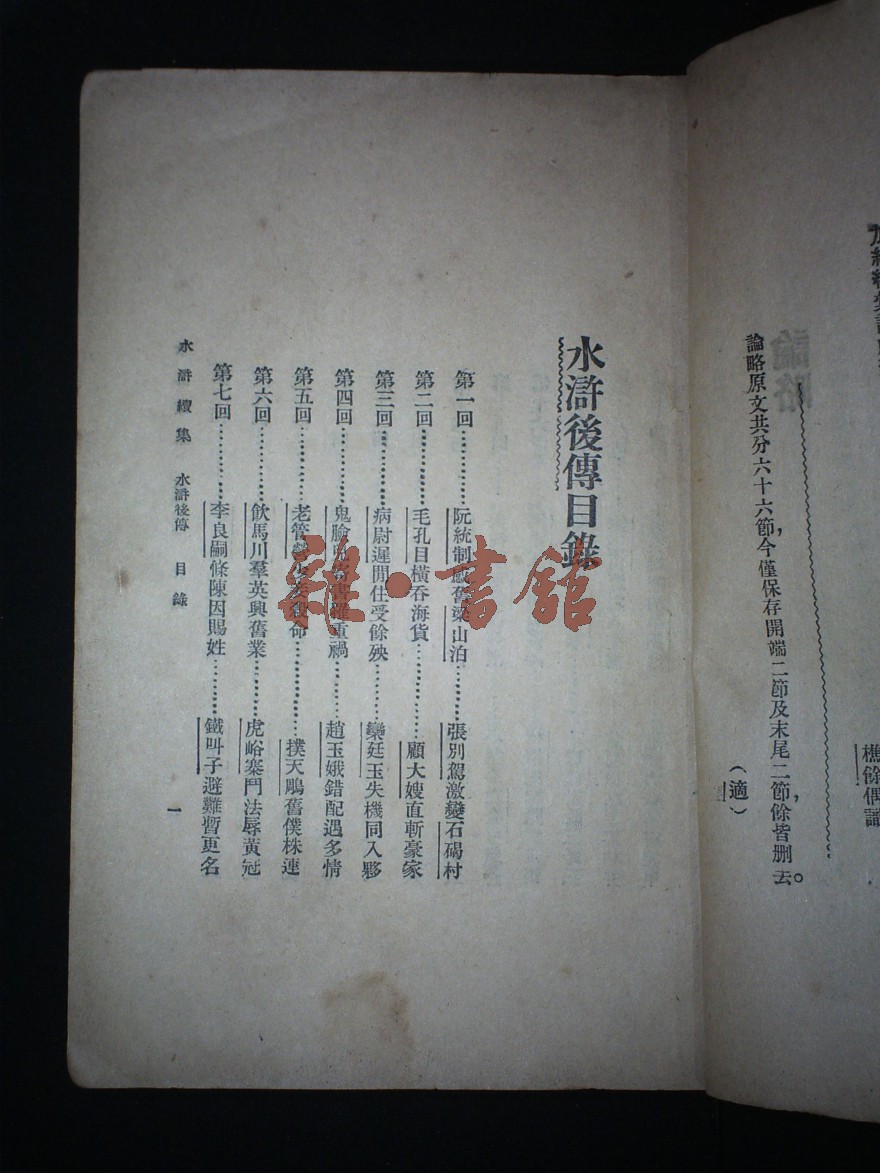 論略原文共分六十六節，今僅保存開端二節及末尾二節，餘皆刪去。
（適）
樵餘偶識
水滸後傳目錄
第一回…………阮統制感舊梁山泊………張別駕激變石碣村
第二回…………毛孔目橫吞海貨…………顧大嫂直斬豪家
第三回…………病尉遲閒住受餘殃………欒廷玉失機同入夥
第四回…………鬼臉兒寄書罹重禍………趙玉娥錯配遇多情
第五回…………老管營 命…………撲天鵰舊僕株連
第六回…………飲馬川羣英興舊業………虎峪寨鬥法辱黃冠
第七回…………李良嗣條陳因賜姓………鐵叫子避難暫更名
水滸續集 水滸後傳 目錄
一
雜·書館